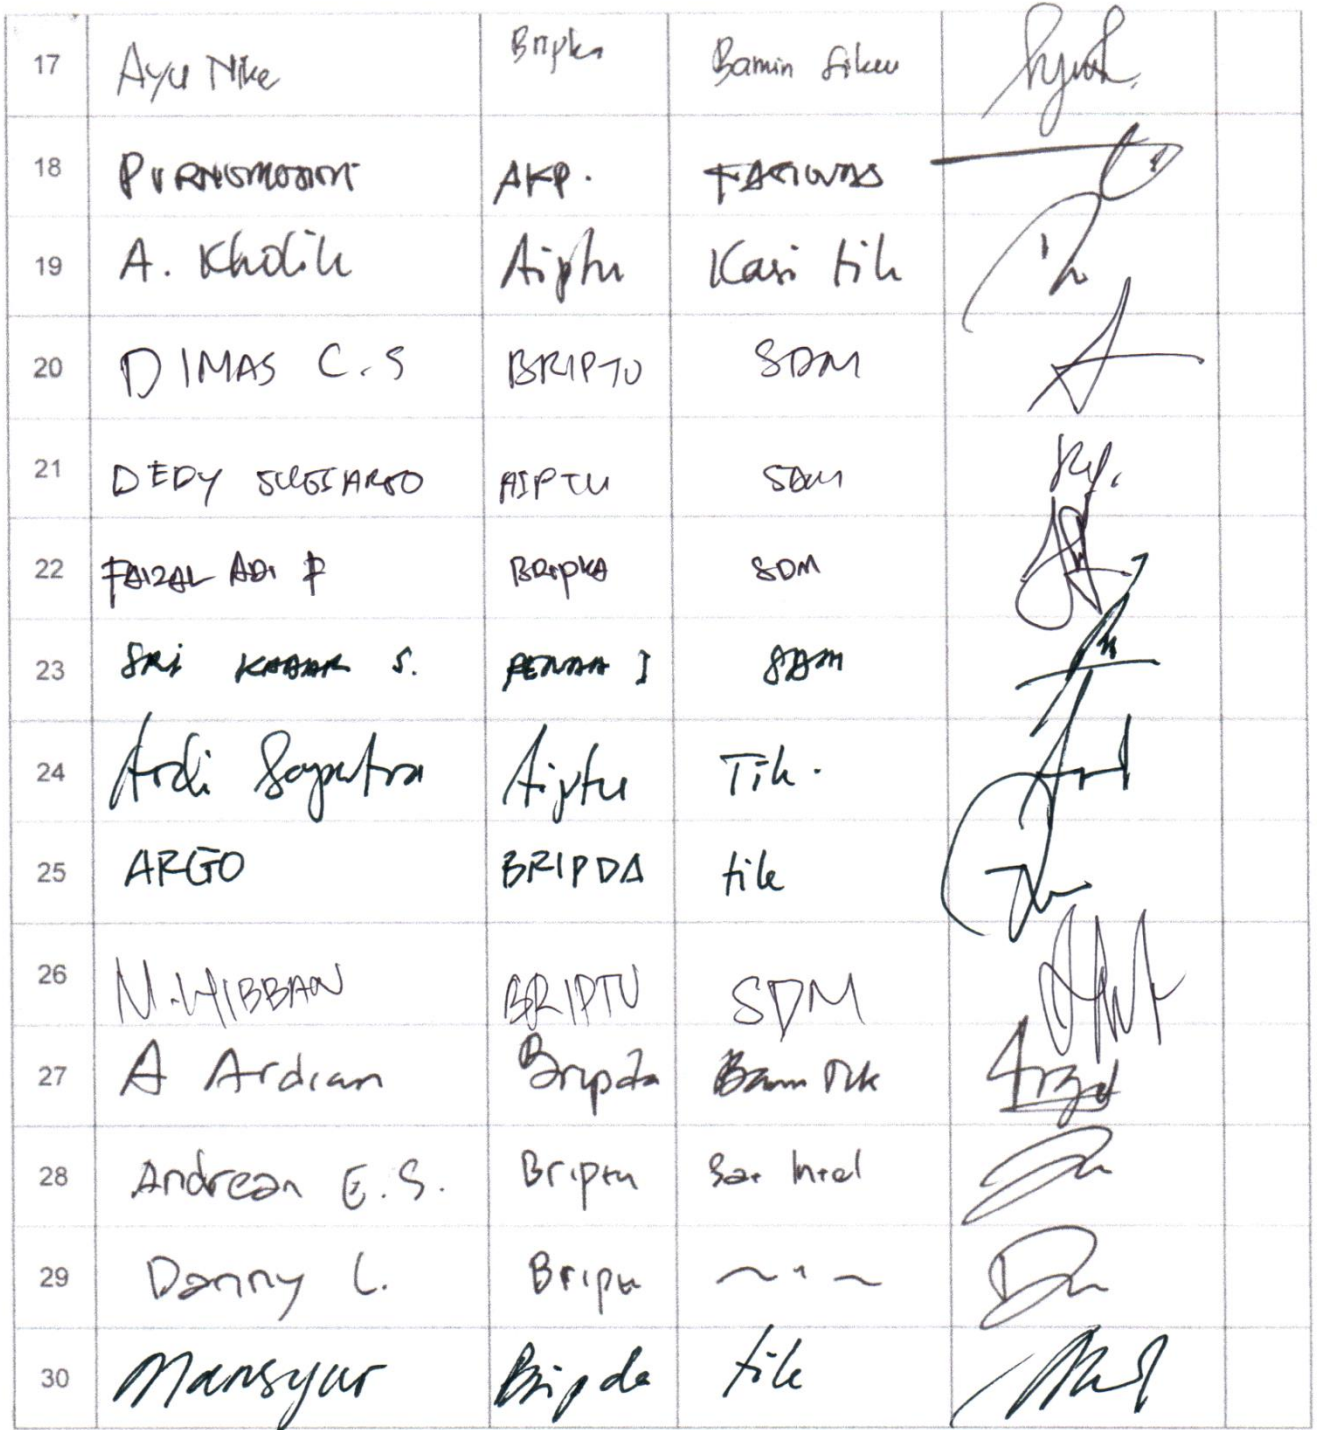 17 Ayu Nike Bripka Bamin Sikeu
18 AKP.
19 A. Kholik Aiptu Kasi tik
20 DIMAS C.S BRIPTU SDM
21 DEDY AIPTU SDM
22 FAIZAL ADI P BRIPKA SDM
23 SRI S. PENDA I SDM
24 Ardi Saputra Aiptu Tik.
25 ARGO BRIPDA tik
26 M.HIBBAN BRIPTU SDM
27 A Ardian Bripda Bamin Tik
28 Andrean E.S. Briptu Sat Intel
29 Danny L. Briptu ~ " ~
30 Mansyur Bripda tik